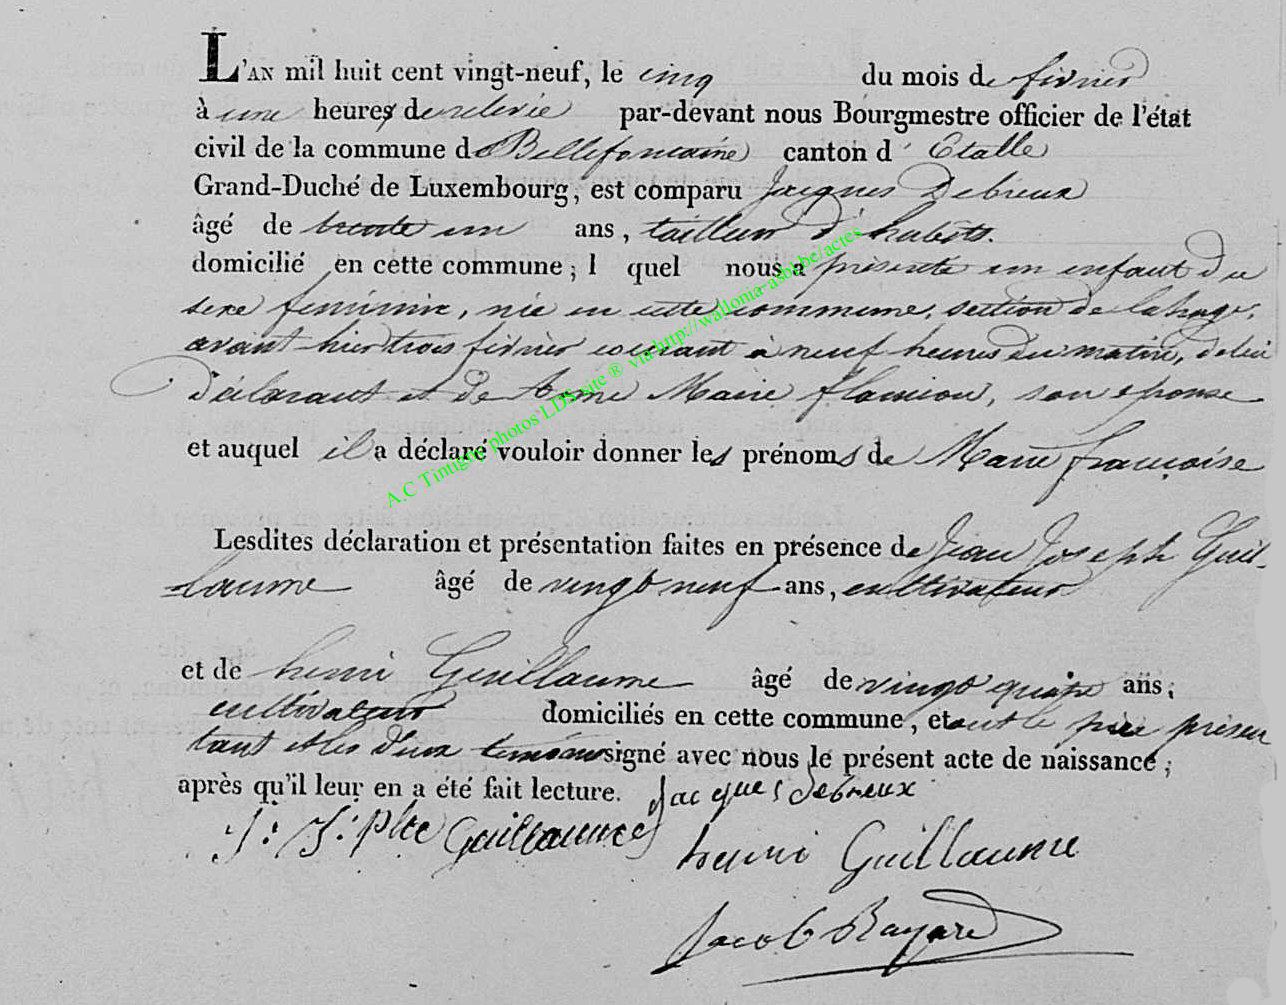 L'AN mil huit cent vingt-neuf, le cinq du mois de février
à une heure de relevée par-devant nous Bourgmestre officier de l'état
civil de la commune de Bellefontaine canton d'Etalle
Grand-Duché de Luxembourg, est comparu Jacques Debreux
âgé de trente un ans, tailleur d'habits.
domicilié en cette commune; l quel nous a présenté un enfant du
sexe féminin, née en cette commune, section de lahage,
avant-hier trois février courant à neuf heures du matin, de lui
Déclarant et de Anne Marie flamion, son épouse
et auquel il a déclaré vouloir donner les prénoms de Marie françoise
Lesdites déclaration et présentation faites en présence de Jean Joseph Guil-
laume âgé de vingt neuf ans, cultivateur
et de henri Guillaume âgé de vingt quatre ans,
cultivateur domiciliés en cette commune, et ont le père présen
tant et les deux témoins signé avec nous le présent acte de naissance;
après qu'il leur en a été fait lecture. Jacques debreux
J: J:ph Guillaume
henri Guillaume
Jacob Bayard
A.C Tintigny photos LDS site ® via http://wallonia-asbl.be/actes